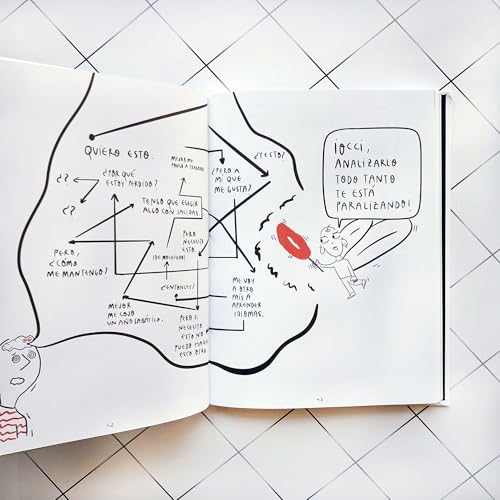 QUIERO ESTO.
MEJOR ME
PONGO A TRABAJAR
¿?
¿POR QUÉ
ESTOY PERDIDO?
¿?
TENGO QUE ELEGIR
ALGO CON SALIDAS
PERO,
¿CÓMO
ME MANTENGO?
¿ENTONCES?
MEJOR
ME COJO
UN AÑO SABÁTICO.
PERO
NECESITO
ESTO.
PERO SI
NECESITO
ESTO NO
PUEDO
ESTO OTRO
¿PERO A
MÍ QUE
ME GUSTA?
¿Y ESTO?
ME VOY
A OTRO
PAÍS A
APRENDER
IDIOMAS.
¡OCCI,
ANALIZARLO
TODO TANTO
TE ESTÁ
PARALIZANDO!